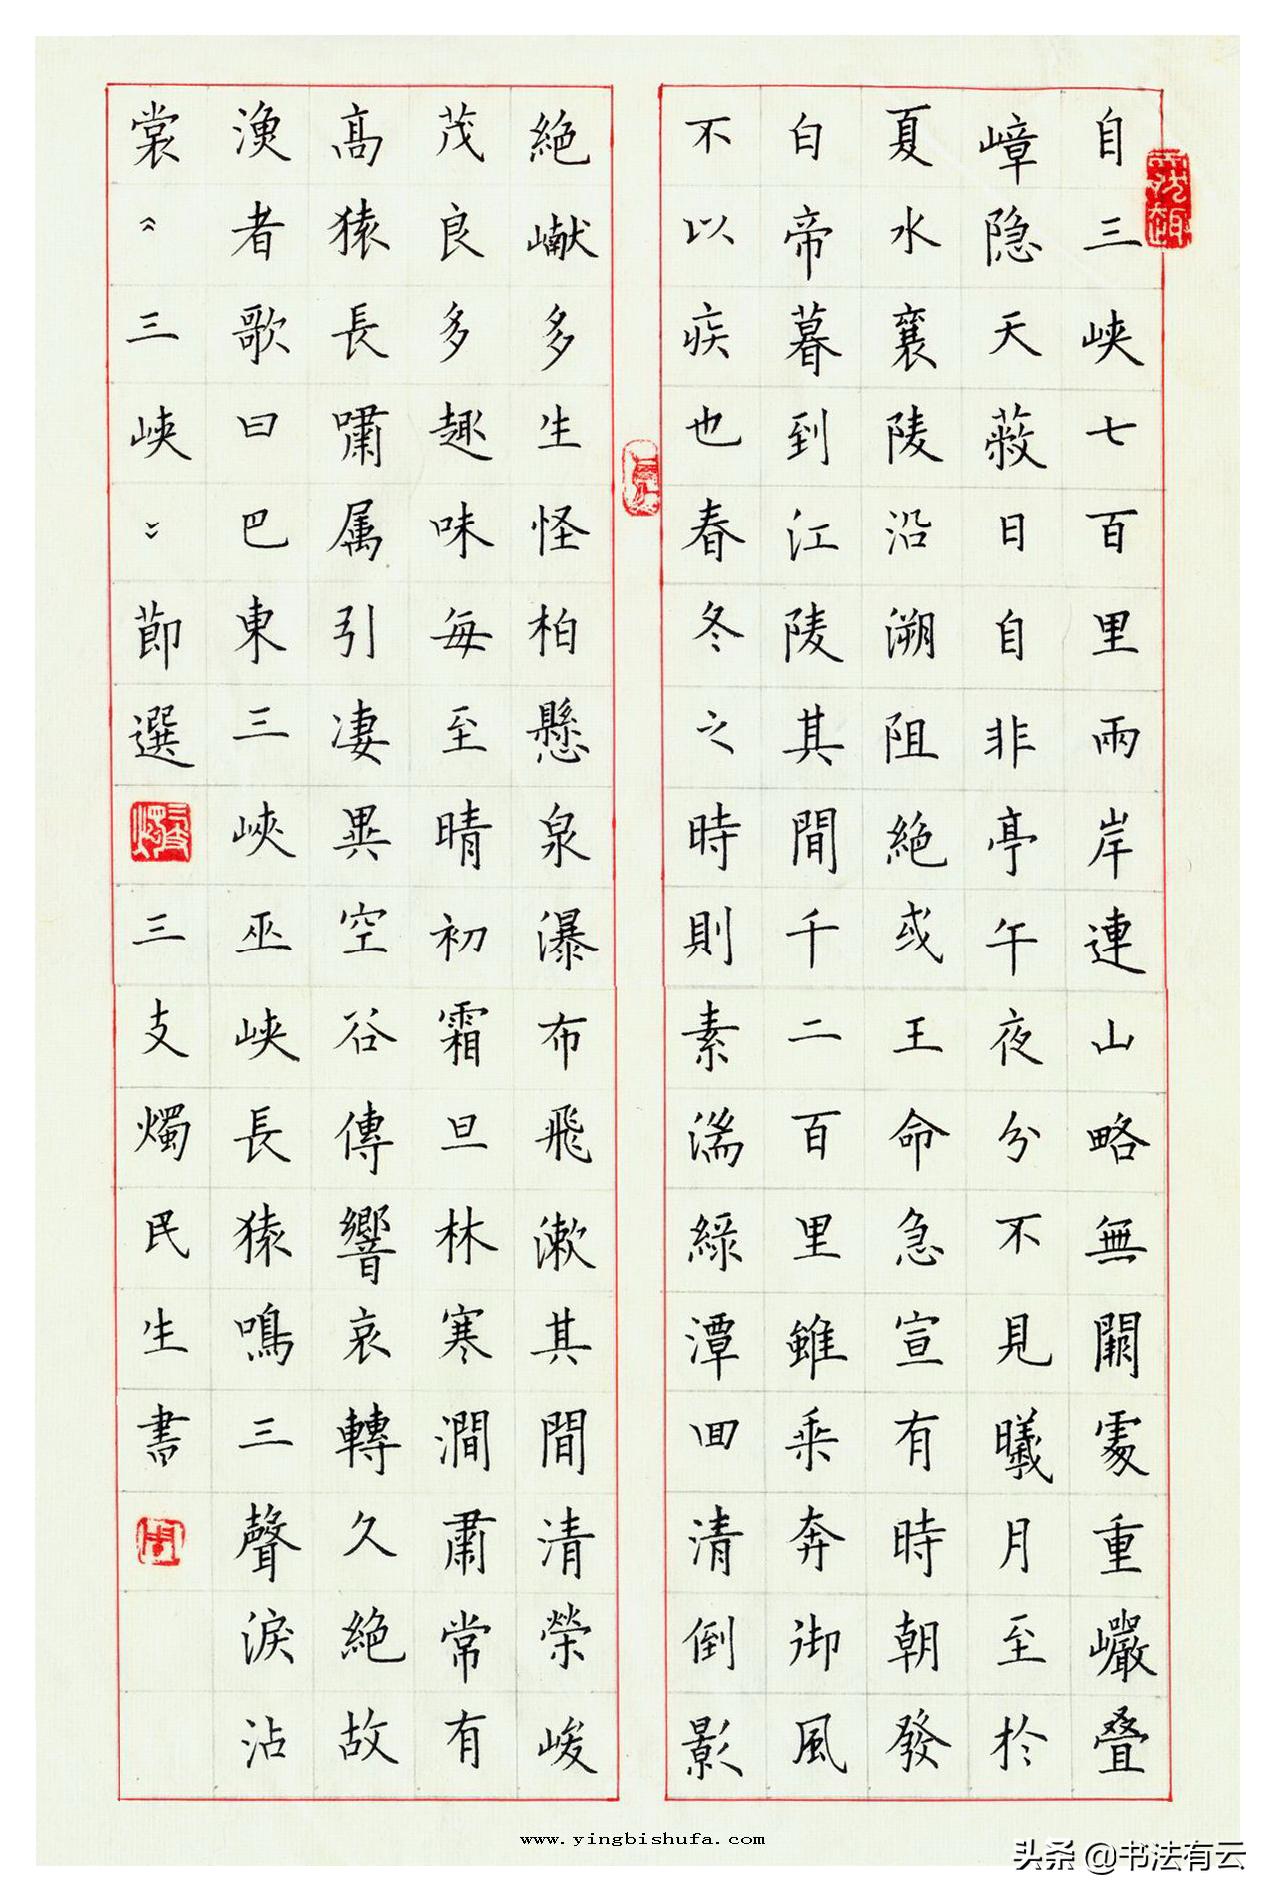 自三峡七百里兩岸連山略無闕處重巗叠
嶂隐天蔽日自非亭午夜分不見曦月至扵
夏水襄陵沿溯阻絕或王命急宣有時朝發
白帝暮到江陵其間千二百里雖乗奔御風
不以疾也春冬之時則素湍綠潭回清倒影
絕巘多生怪柏懸泉瀑布飛漱其間清榮峻
茂良多趣味每至晴初霜旦林寒澗肅常有
髙猿長嘯属引凄異空谷傳響哀轉久絕故
漁者歌曰巴東三峽巫峡長猿鳴三聲淚沾
裳︽三峡︾節選
三支燭民生書
www.yingbishufa.com
头条 @书法有云